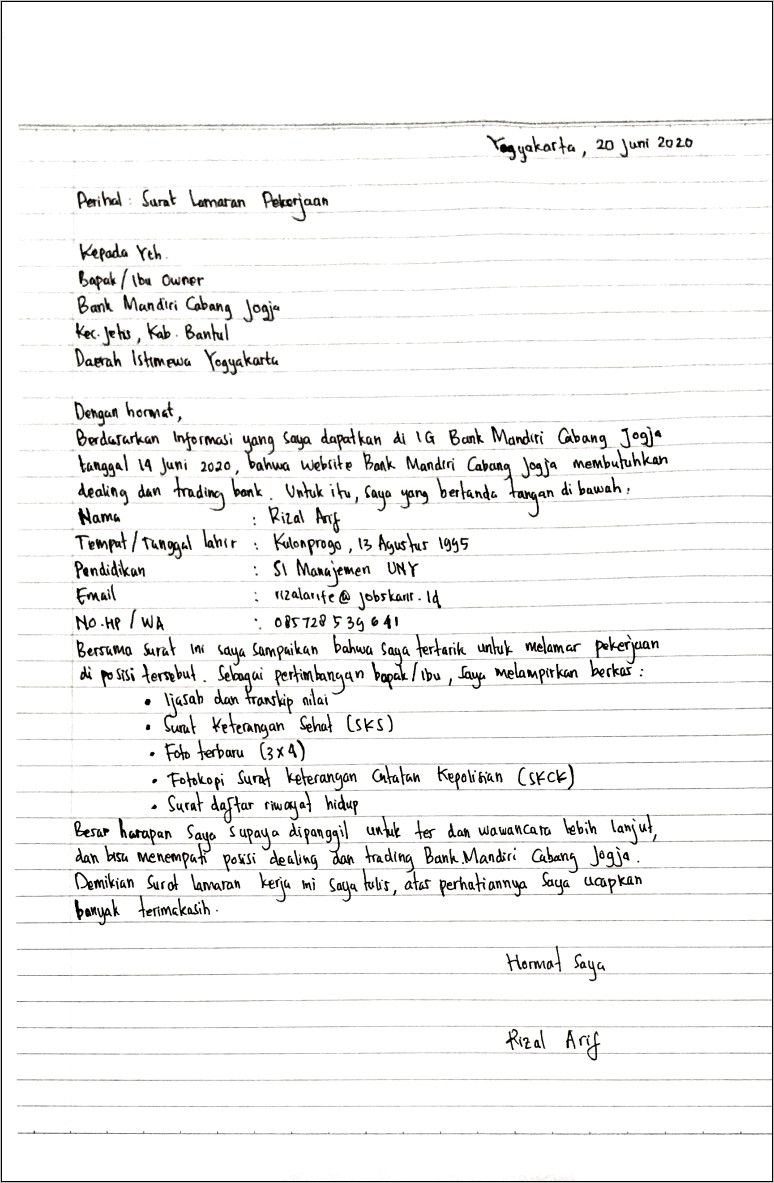 Yogyakarta, 20 Juni 2020
Perihal : Surat Lamaran Pekerjaan
Kepada Yth.
Bapak/Ibu Owner
Bank Mandiri Cabang Jogja
Kec. Jetis, Kab. Bantul
Daerah Istimewa Yogyakarta
Dengan hormat,
Berdasarkan informasi yang saya dapatkan di IG Bank Mandiri Cabang Jogja
tanggal 14 Juni 2020, bahwa website Bank Mandiri Cabang Jogja membutuhkan
dealing dan trading bank. Untuk itu, saya yang bertanda tangan di bawah :
Nama : Rizal Arif
Tempat/Tanggal lahir : Kulonprogo, 13 Agustus 1995
Pendidikan : S1 Manajemen UNY
Email : rizalarife@jobskarir.id
No.HP/WA : 085728539641
Bersama surat ini saya sampaikan bahwa saya tertarik untuk melamar pekerjaan
di posisi tersebut. Sebagai pertimbangan bapak/ibu, saya melampirkan berkas :
• Ijasah dan transkip nilai
• Surat Keterangan Sehat (SKS)
• Foto terbaru (3x4)
• Fotokopi Surat keterangan Catatan Kepolisian (SKCK)
• Surat daftar riwayat hidup
Besar harapan Saya supaya dipanggil untuk tes dan wawancara lebih lanjut,
dan bisa menempati posisi dealing dan trading Bank Mandiri Cabang Jogja.
Demikian surat lamaran kerja ini saya tulis, atas perhatiannya saya ucapkan
banyak terimakasih.
Hormat Saya
Rizal Arif